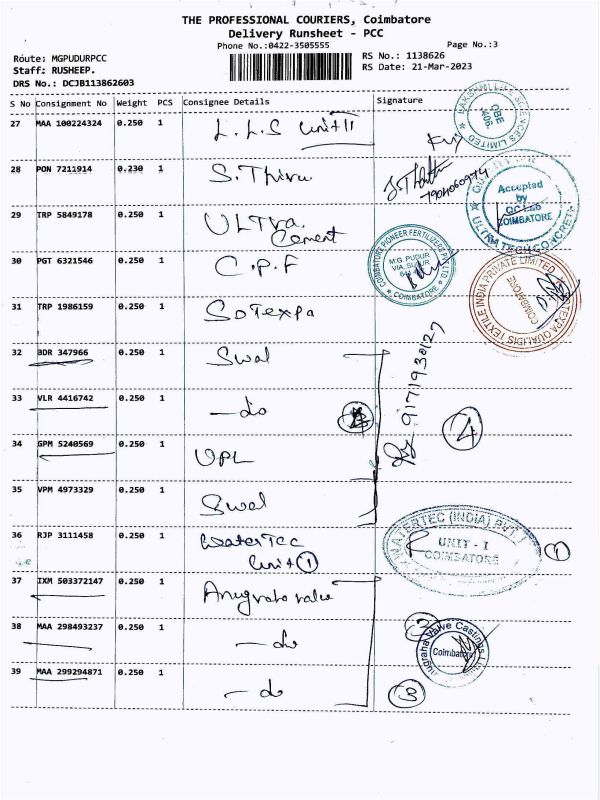 THE PROFESSIONAL COURIERS, Coimbatore
Delivery Runsheet - PCC
Phone No.:0422-3505555
Page No.:3
Route: MGPUDURPCC
Staff: RUSHEEP.
DRS No.: DCJB113862603
RS No.: 1138626
RS Date: 21-Mar-2023
S No Consignment No Weight PCS Consignee Details Signature
27 MAA 100224324 0.250 1 L.L.S Unit II
28 PON 7211914 0.230 1 S.Thiru
7904060974
29 TRP 5849178 0.250 1 ULTra. Cement
Accepted
by
COIMBATORE
ULTRA TECH CONCRETE
30 PGT 6321546 0.250 1 C.P.F
COIMBATORE PIONEER FERTILIZERS PVT LTD
M.G. PUDUR
VIA. SULUR
COIMBATORE
31 TRP 1986159 0.250 1 SOTexpa
TEXPA QUALIDIS TEXTILE INDIA PRIVATE LIMITED
COIMBATORE
32 BDR 347966 0.250 1 Swal
33 VLR 4416742 0.250 1 -do
4
34 GPM 5240569 0.250 1 UPL
35 VPM 4973329 0.250 1 Swal
36 RJP 3111458 0.250 1 WaterTec
Unit 1
WATERTEC (INDIA) PVT.
UNIT - I
COIMBATORE
1
37 IXM 503372147 0.250 1 Anugraha valve
38 MAA 298493237 0.250 1 -do
Anugraha Valve Castings
Coimbatore
39 MAA 299294871 0.250 1 -do
3